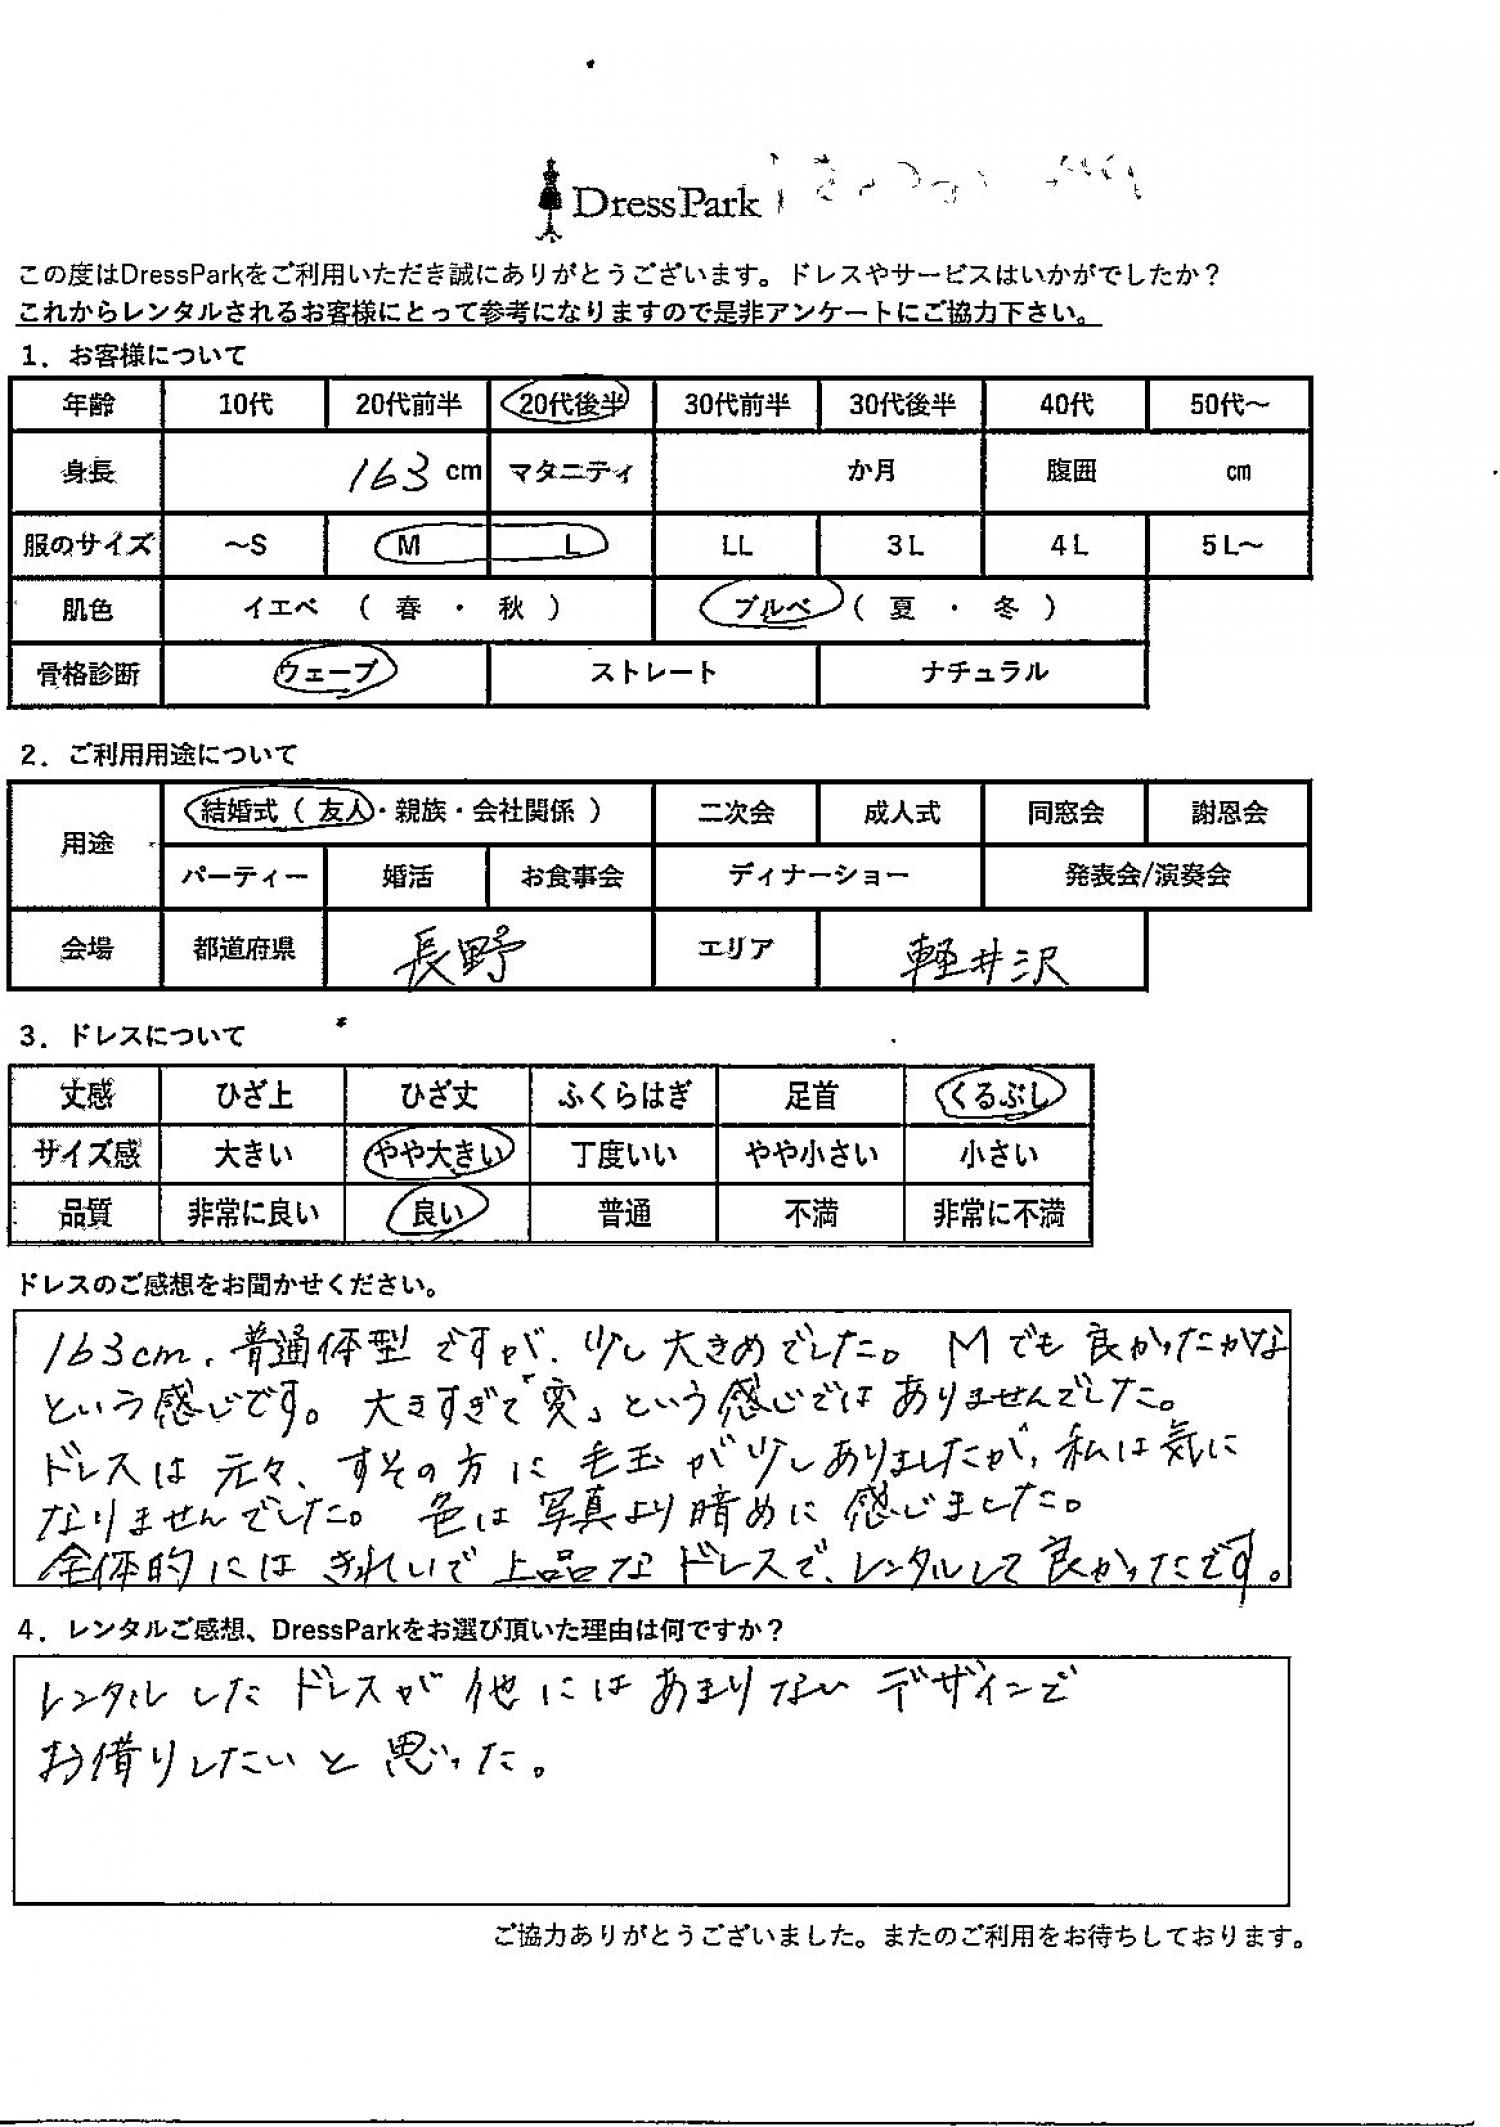 DressPark
この度はDressParkをご利用いただき誠にありがとうございます。ドレスやサービスはいかがでしたか？
これからレンタルされるお客様にとって参考になりますので是非アンケートにご協力下さい。
1．お客様について
年齢 10代 20代前半 20代後半 30代前半 30代後半 40代 50代～
身長 163 cm マタニティ か月 腹囲 cm
服のサイズ ～S M L LL 3L 4L 5L～
肌色 イエベ （ 春 ・ 秋 ） ブルベ （ 夏 ・ 冬 ）
骨格診断 ウェーブ ストレート ナチュラル
2．ご利用用途について
用途 結婚式（ 友人・親族・会社関係 ） 二次会 成人式 同窓会 謝恩会
パーティー 婚活 お食事会 ディナーショー 発表会/演奏会
会場 都道府県 長野 エリア 軽井沢
3．ドレスについて
丈感 ひざ上 ひざ丈 ふくらはぎ 足首 くるぶし
サイズ感 大きい やや大きい 丁度いい やや小さい 小さい
品質 非常に良い 良い 普通 不満 非常に不満
ドレスのご感想をお聞かせください。
163cm、普通体型ですが、少し大きめでした。Mでも良かったかな
という感じです。大きすぎて「変」という感じではありませんでした。
ドレスは元々、すその方に毛玉が少しありましたが、私は気に
なりませんでした。色は写真より暗めに感じました。
全体的にはきれいで上品なドレスで、レンタルして良かったです。
4．レンタルご感想、DressParkをお選び頂いた理由は何ですか？
レンタルしたドレスが他にはあまりないデザインで
お借りしたいと思った。
ご協力ありがとうございました。またのご利用をお待ちしております。